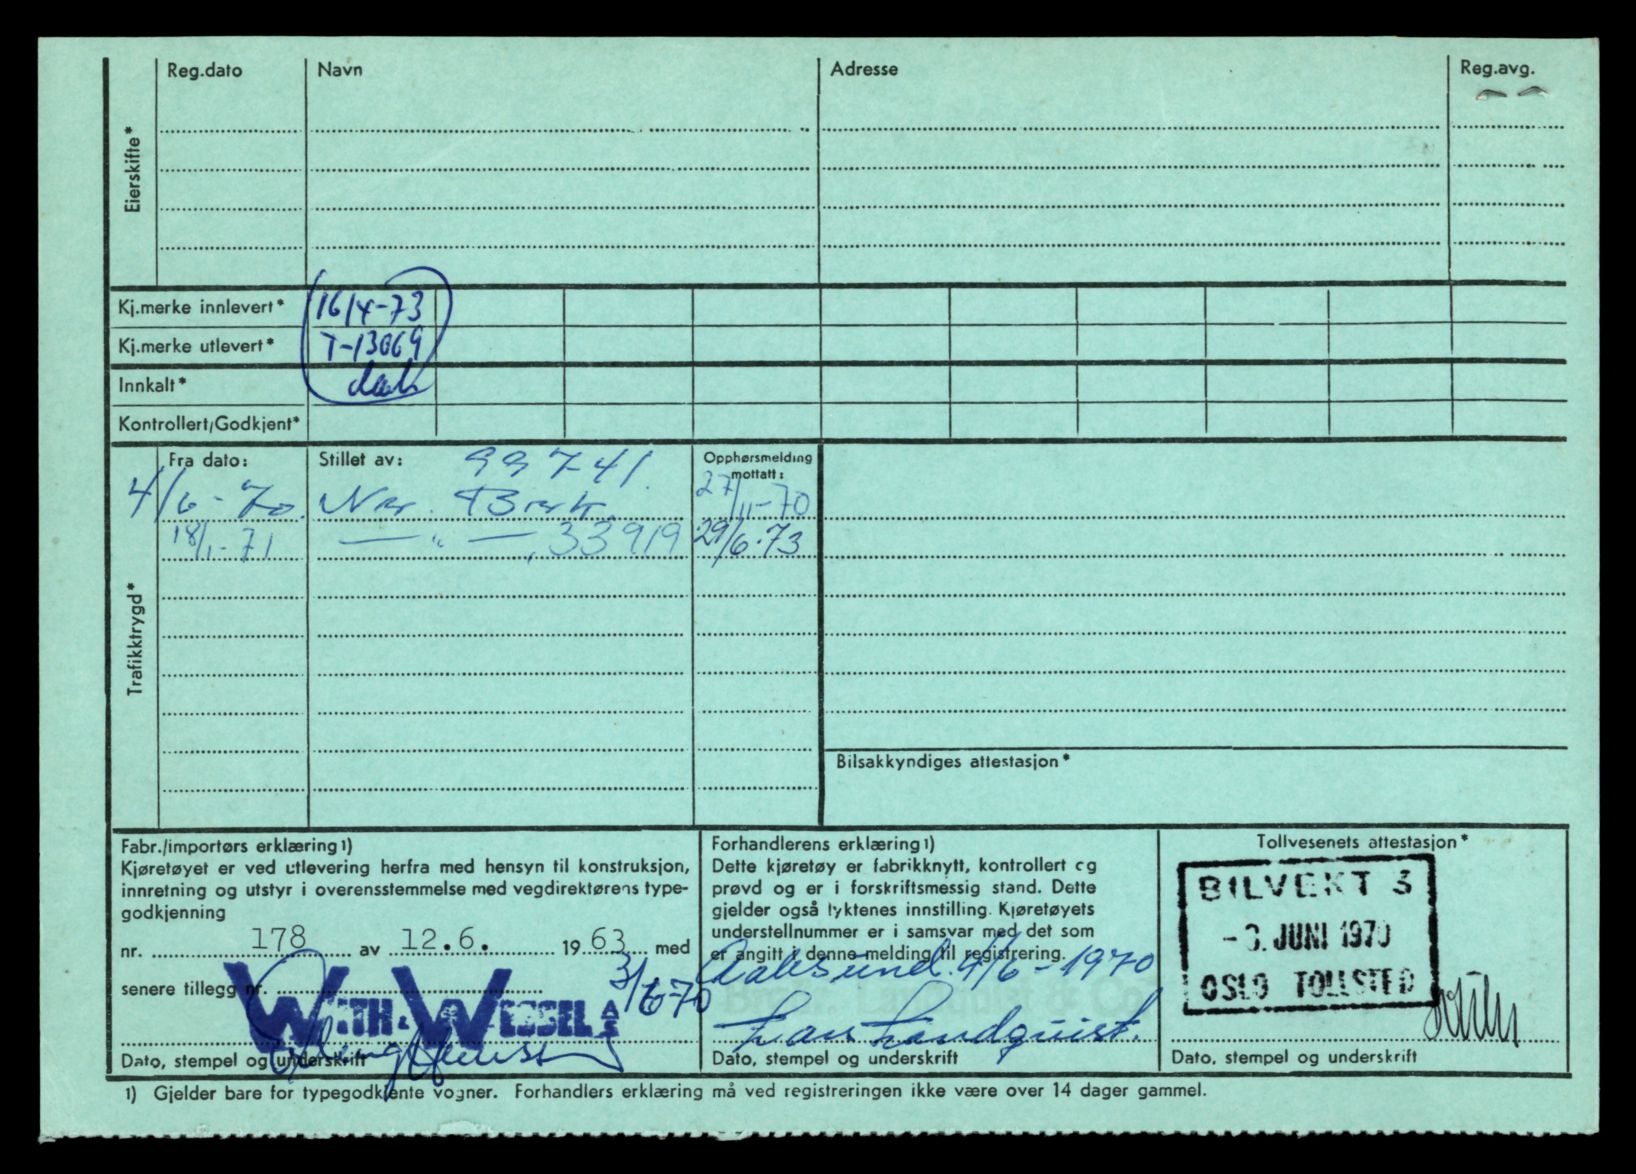 Eierskifte*
Reg.dato Navn Adresse Reg.avg.
Kj.merke innlevert* 16/4-73
Kj.merke utlevert* T-13069
Innkalt*
Kontrollert/Godkjent*
Trafikktrygd*
Fra dato: Stillet av: 99741. Opphørsmelding
mottatt:
4/6-70. Nor. Brak. 27/11-70
18/1-71 — „ —, 33919 29/6-73
Bilsakkyndiges attestasjon*
Fabr./importørs erklæring 1)
Kjøretøyet er ved utlevering herfra med hensyn til konstruksjon,
innretning og utstyr i overensstemmelse med vegdirektørens type-
godkjenning
nr. 178 av 12.6. 1963 med
senere tillegg nr.
3/6-70
WETH & WESSEL A/S
Dato, stempel og underskrift
Forhandlerens erklæring 1)
Dette kjøretøy er fabrikknytt, kontrollert og
prøvd og er i forskriftsmessig stand. Dette
gjelder også lyktenes innstilling. Kjøretøyets
understellnummer er i samsvar med det som
er angitt i denne melding til registrering.
Aalesund 4/6-1970
Lars Landquist.
Dato, stempel og underskrift
Tollvesenets attestasjon*
BILVEKT 3
-3. JUNI 1970
OSLO TOLLSTED
Dato, stempel og underskrift
1) Gjelder bare for typegodkjente vogner. Forhandlers erklæring må ved registreringen ikke være over 14 dager gammel.